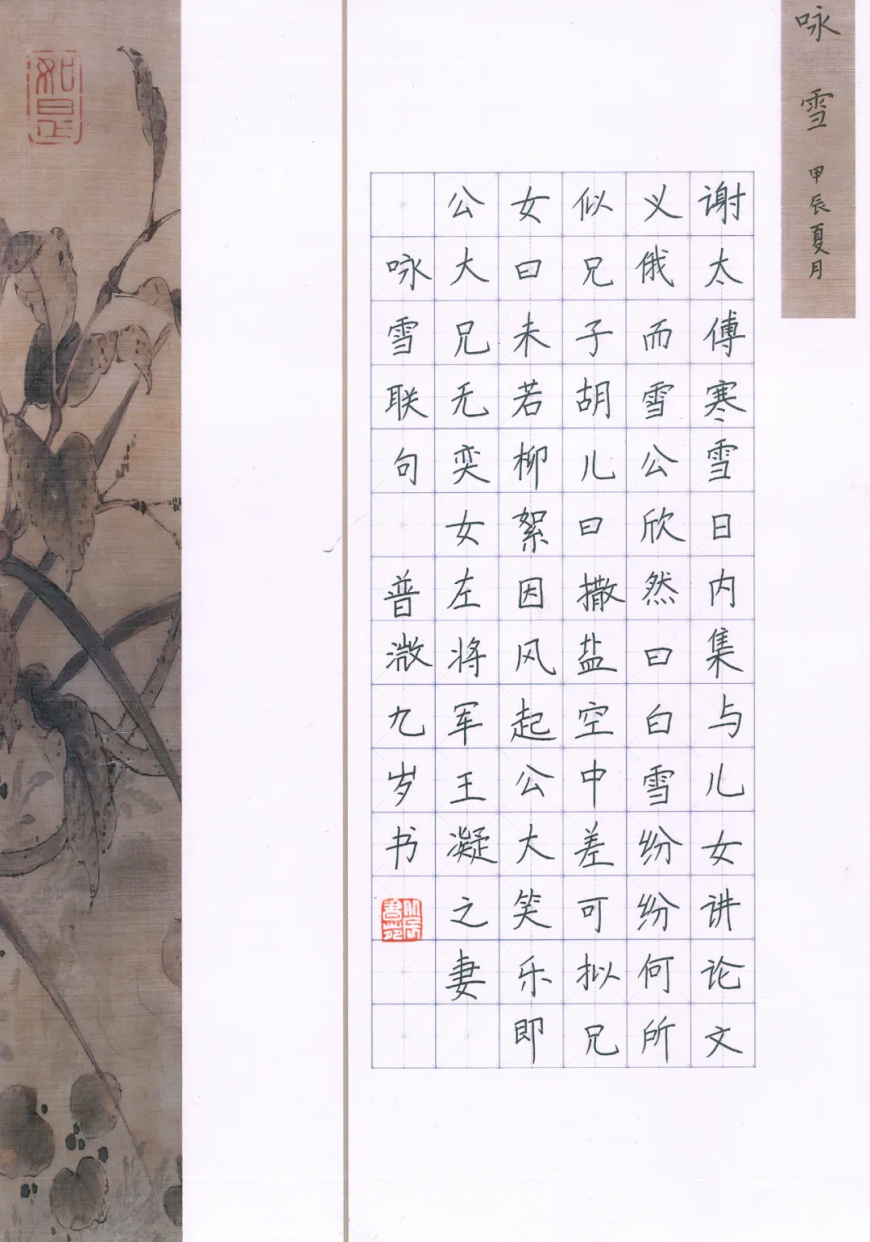 咏雪 甲辰夏月
谢太傅寒雪日内集与儿女讲论文
义俄而雪公欣然曰白雪纷纷何所
似兄子胡儿曰撒盐空中差可拟兄
女曰未若柳絮因风起公大笑乐即
公大兄无奕女左将军王凝之妻
咏雪联句 普溦九岁书
如是